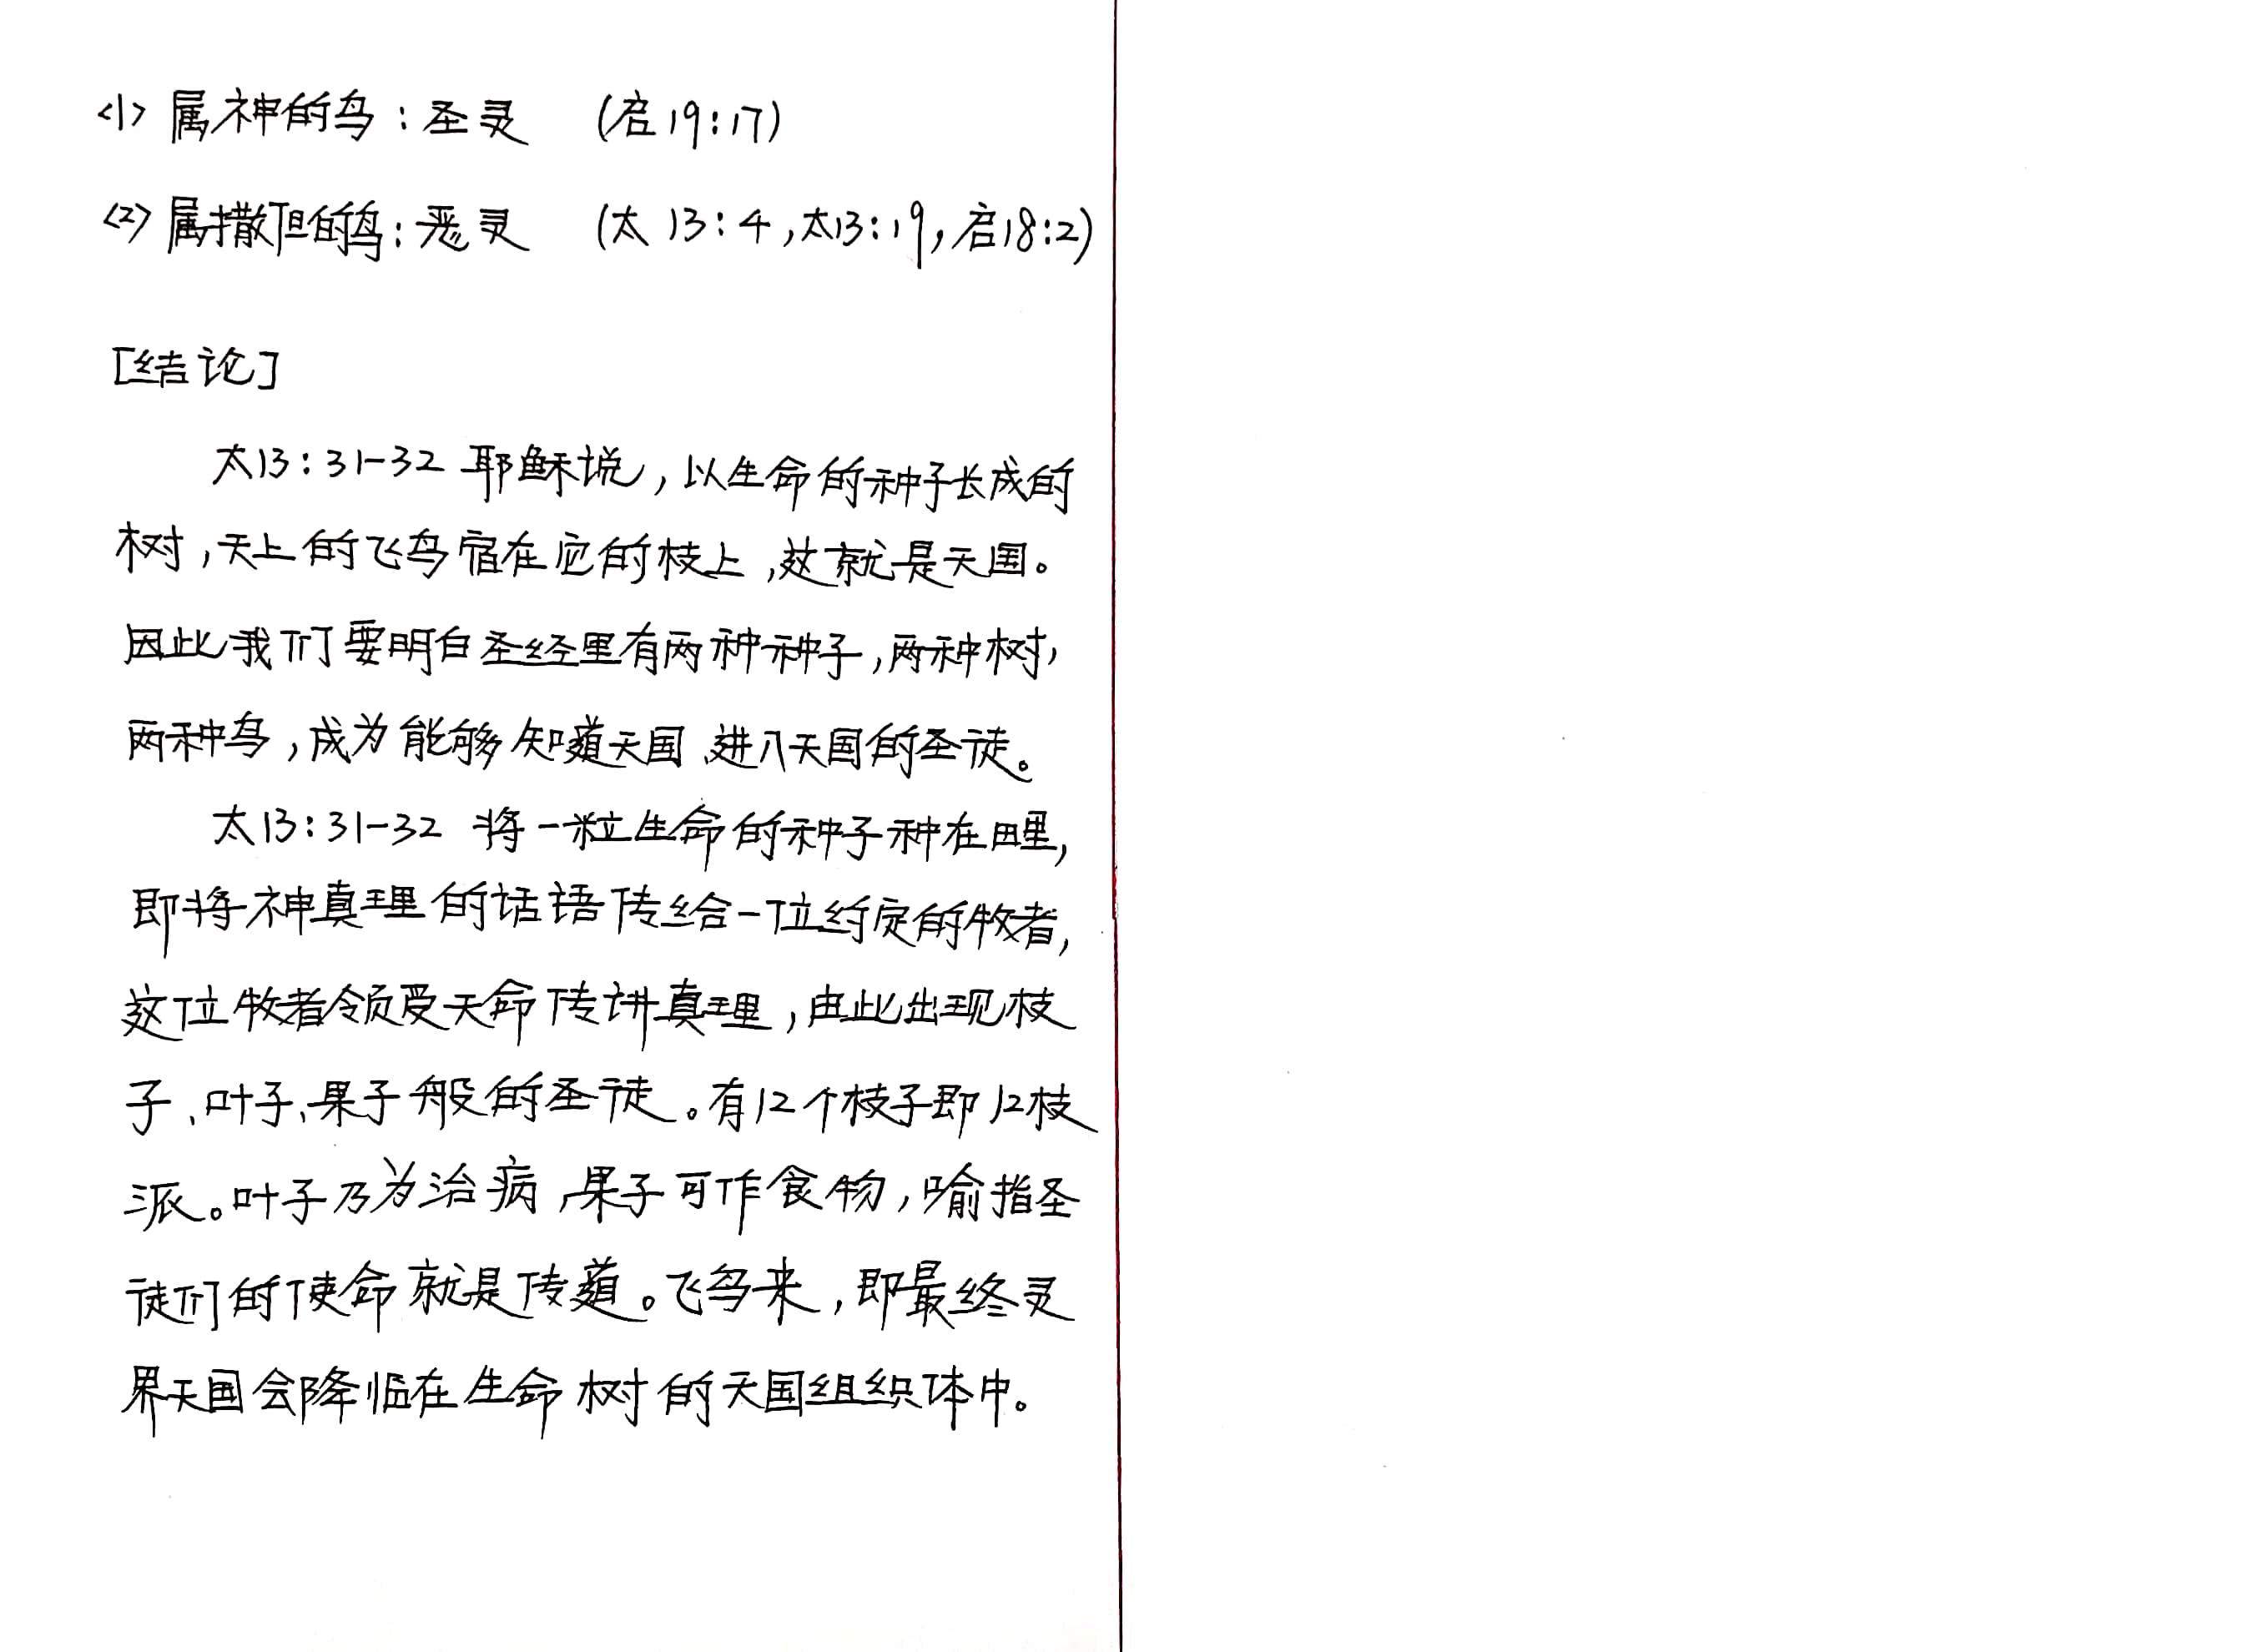 <1> 属神的鸟：圣灵 (启19:17)
<2> 属撒但的鸟：恶灵 (太 13:4,太13:19,启18:2)
[结论]
太13:31-32 耶稣说，以生命的种子长成的
树，天上的飞鸟宿在它的枝上，这就是天国。
因此我们要明白圣经里有两种种子，两种树，
两种鸟，成为能够知道天国、进入天国的圣徒。
太13:31-32 将一粒生命的种子种在田里，
即将神真理的话语传给一位约定的牧者，
这位牧者领受天命传讲真理，由此出现枝
子、叶子、果子般的圣徒。有12个枝子即12枝
派。叶子乃为治病，果子可作食物，喻指圣
徒们的使命就是传道。飞鸟来，即最终灵
界天国会降临在生命树的天国组织体中。